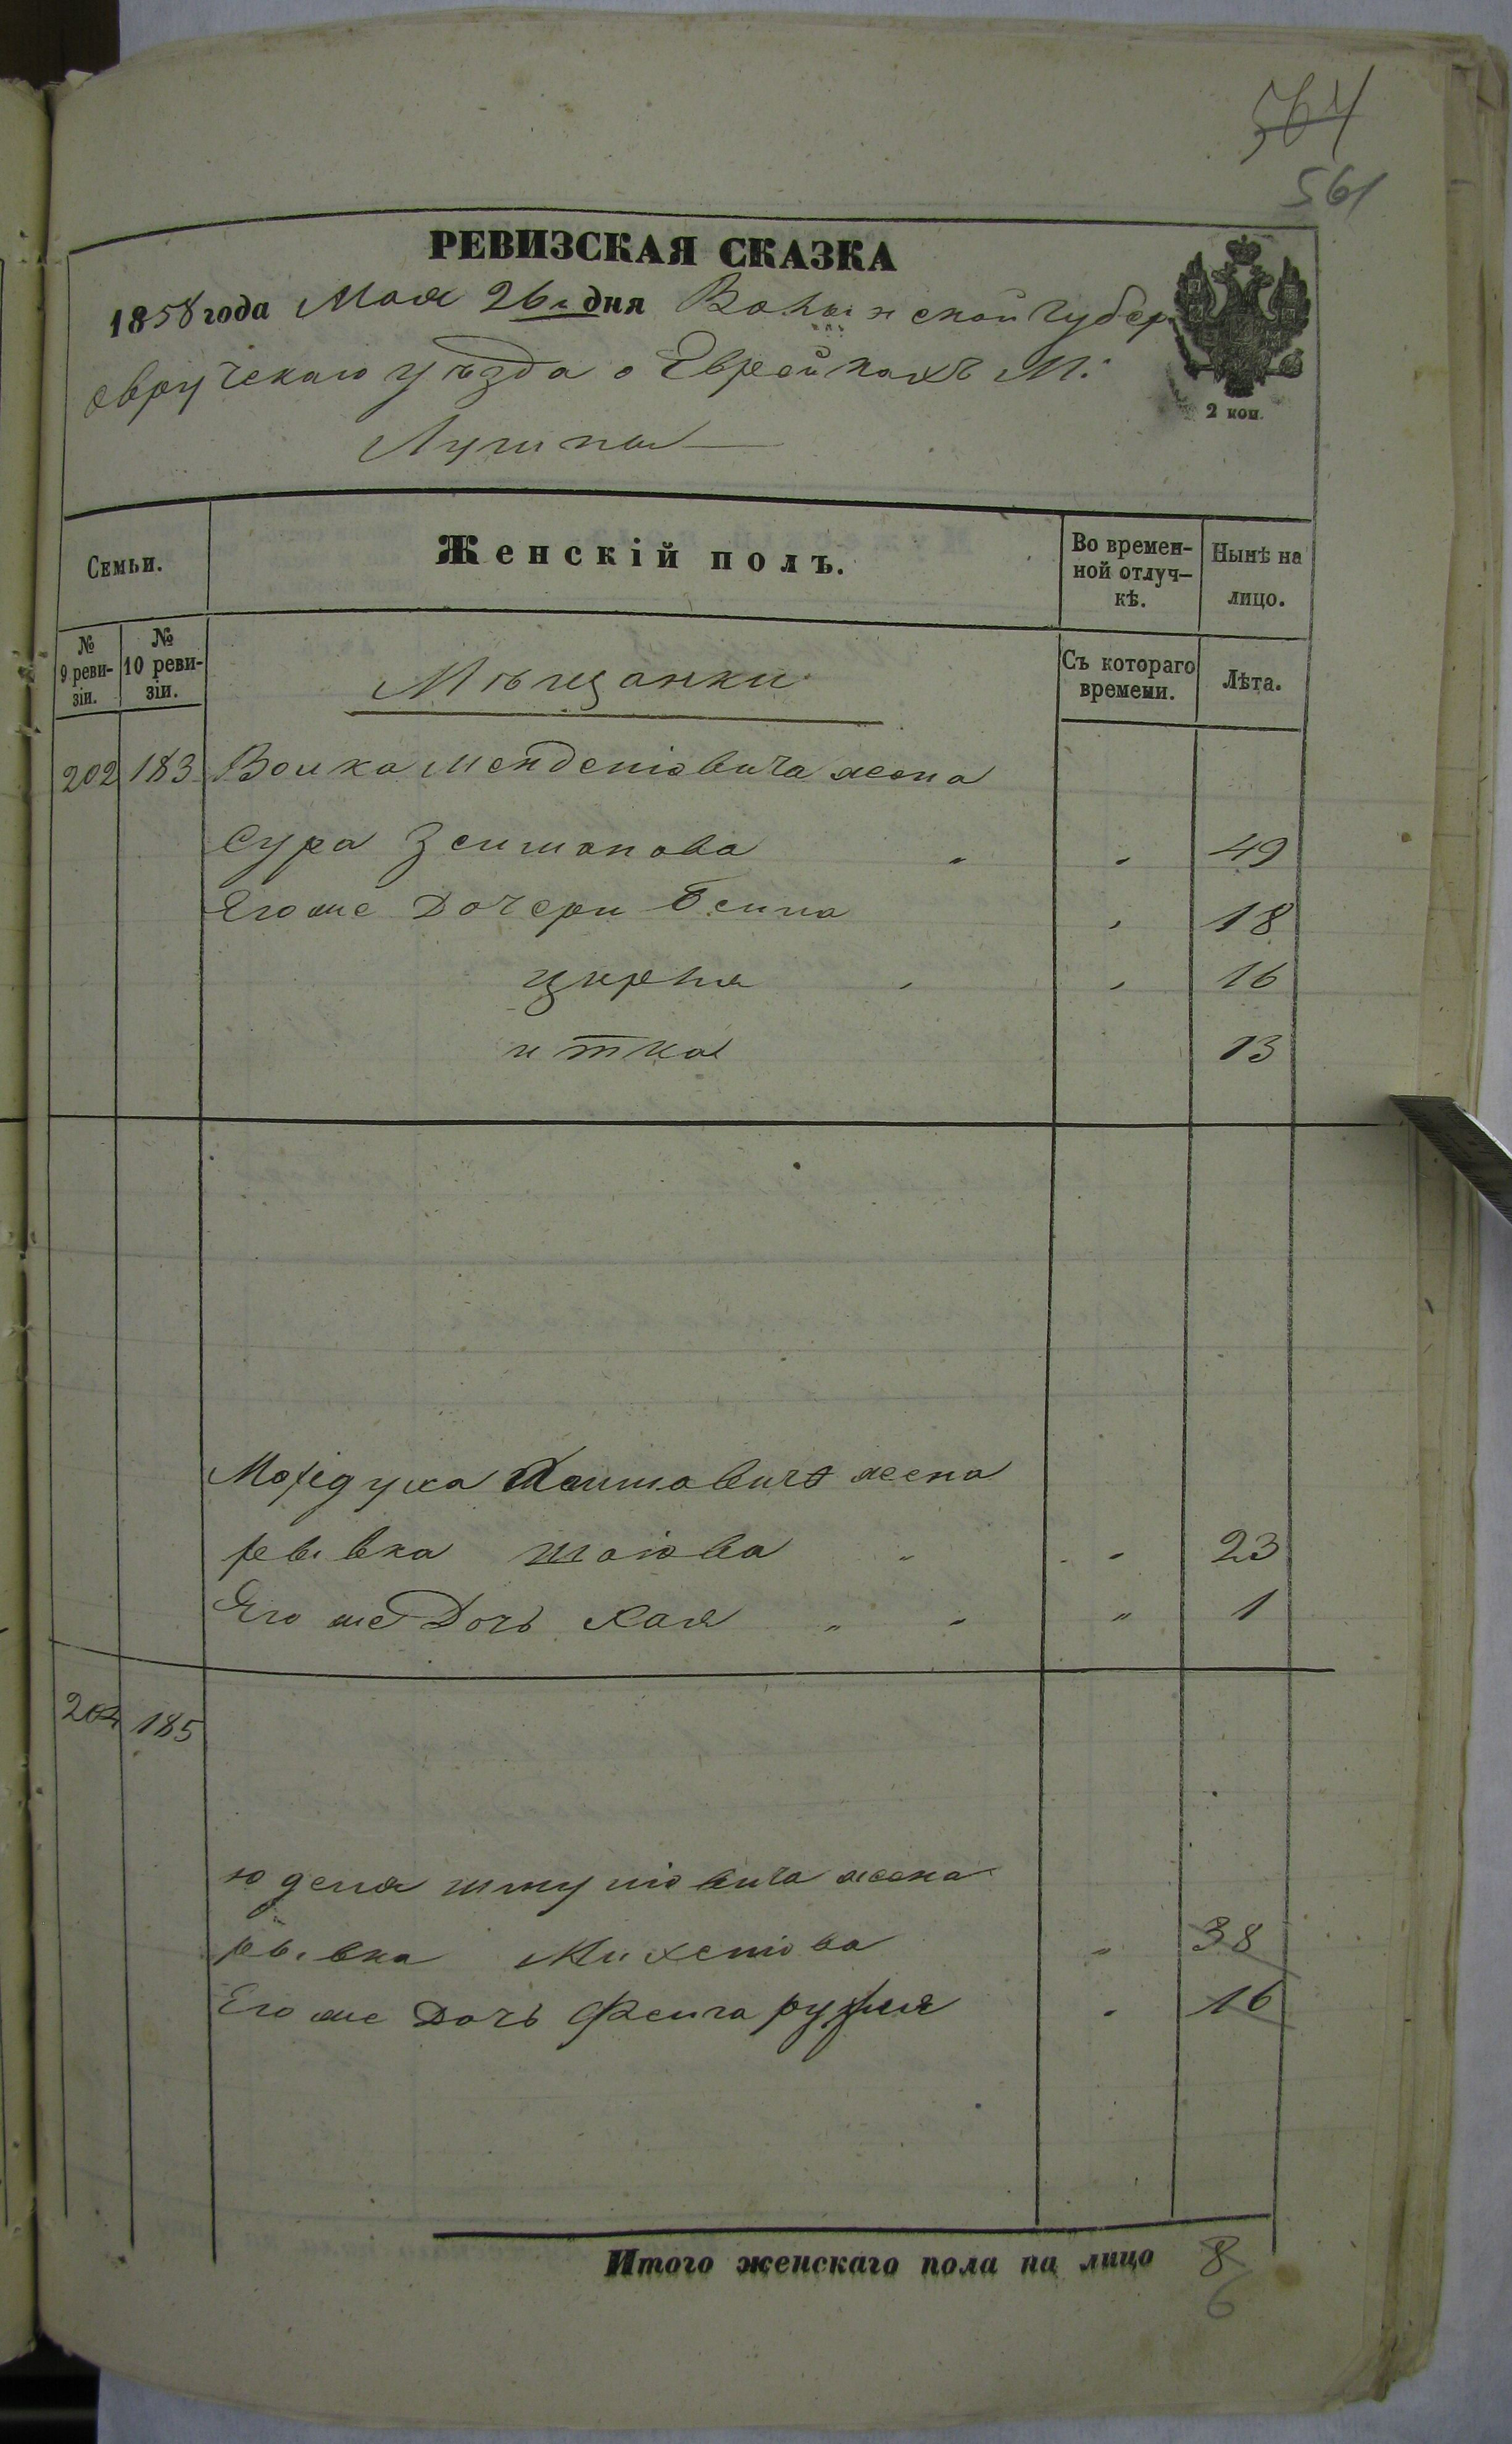 564
561
РЕВИЗСКАЯ СКАЗКА
1858 года Мая 26 дня Волынской Губер
овручскаго уѣзда о Еврейкахъ М:
Лугины
2 коп.
Семьи.
Женскій полъ.
Во времен-
ной отлуч-
кѣ.
Нынѣ на
лицо.
№
9 реви-
зіи.
№
10 реви-
зіи.
Мѣщанки
Съ котораго
времени.
Лѣта.
202 183 Волка Менделіовича жена
Сура Зельманова " " 49
Его же Дочери Бейла " 18
цирля " " 16
итка 13
Мордуха жена
ревека шаіова " " 23
Его же Дочь хая " " " 1
204 185
юделя шмуліовича жена
рывка Михеліова " 38
Его же Дочь Фейга рухля " 16
Итого женскаго пола на лицо 8
6